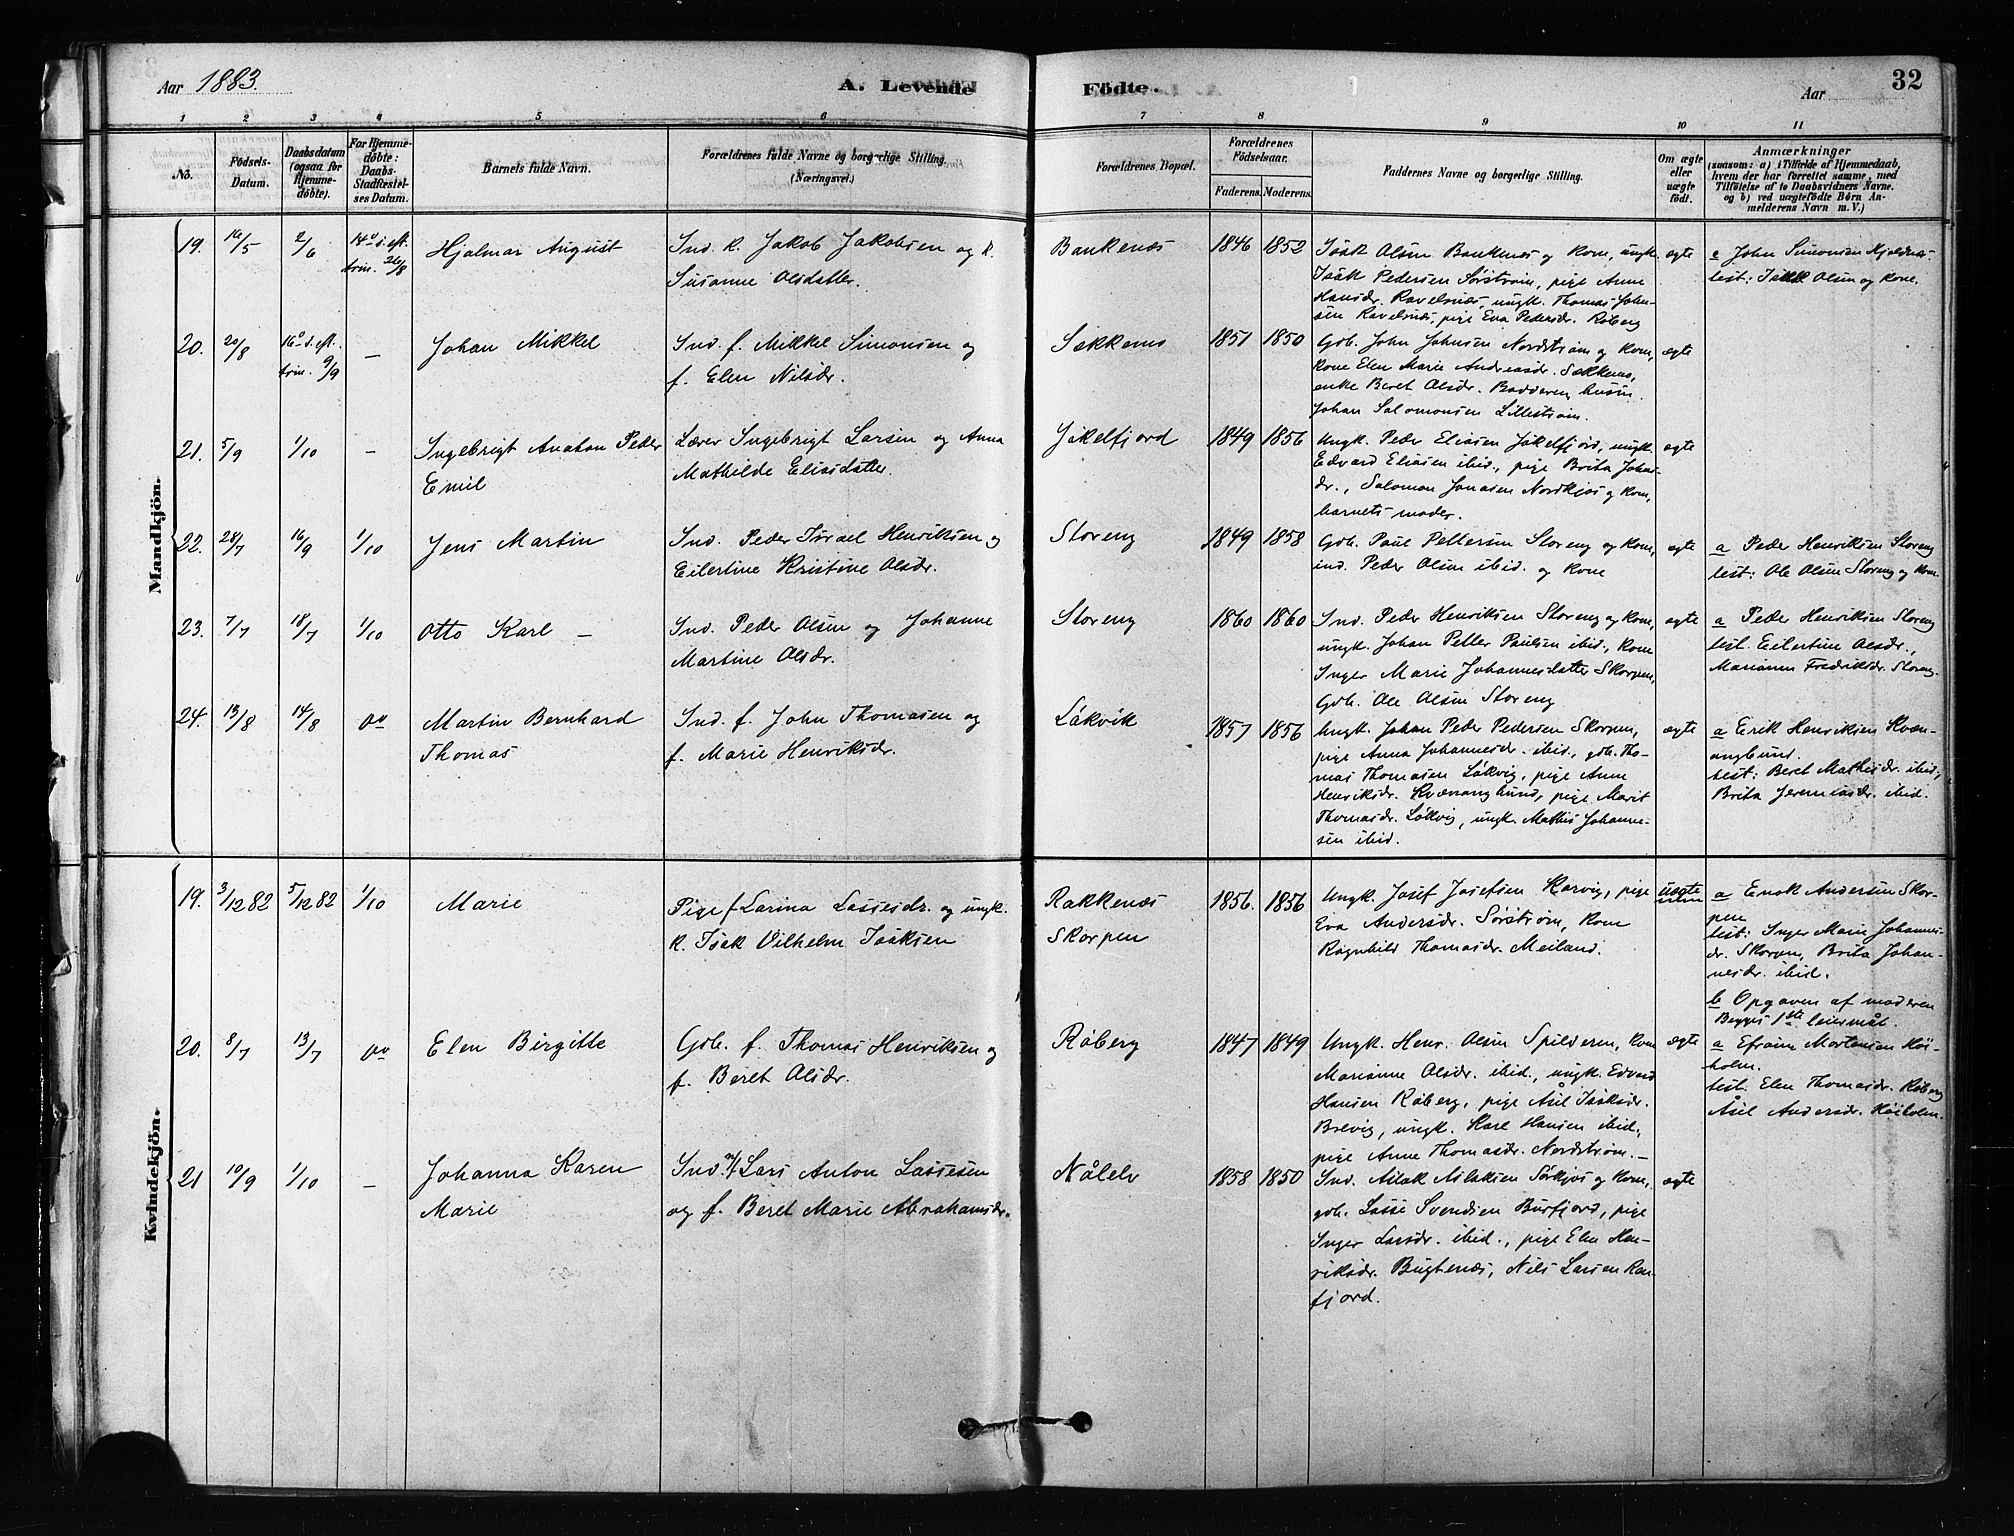 Aar 1883.
A. Levende Födte.
Aar
32
1 2 3 4 5 6 7 8 9 10 11
No.
Födsels-Datum.
Daabsdatum (ogsaa for Hjemme-döbte).
For Hjemme-döbte: Daabs-Stadfæstel-ses Datum.
Barnets fulde Navn.
Forældrenes fulde Navne og borgerlige Stilling. (Næringsvei.)
Forældrenes Bopæl.
Forældrenes Födselsaar.
Faderens. Moderens.
Faddernes Navne og borgerlige Stilling.
Om ægte eller uægte födt.
Anmærkninger
(saasom: a) i Tilfælde af Hjemmedaab, hvem der har forrettet samme, med Tilföielse af to Daabsvidners Navne. og b) ved uægtefödte Börn An-melderens Navn m. V.)
Mandkjön.
19. 16/5 2/6 14de s. eft. trin. 26/8
Hjalmar August
Ind. k. Jakob Jakobsen og k.
Susanne Olsdatter.
Bankenæs 1846 1852
Isak Olsen Bankenæs og kone, ungk.
Isak Pedersen Sørstrøm, pige Anne
Hansdr. Ravelsnæs, ungk. Thomas John-
sen Ravelsnæs, pige Eva Pedersdr. Røberg
ægte
a John Simonsen Kjeldnæs
test: Isak Olsen og kone.
20. 20/8 16de s. eft. trin. 9/9 —
Johan Mikkel
Ind. f. Mikkel Simonsen og
f. Elen Nilsdr.
Sekkenes 1851 1850
Gdb. John Johnsen Nordstrøm og kone,
kone Elen Marie Andreasdr. Sækkenes,
enke Beret Olsdr. Badderen, husm.
Johan Salomonsen Lillestrøm.
ægte
21. 5/9 1/10 -
Ingebrigt Anaton Peder
Emil
Lærer Ingebrigt Larsen og Anna
Mathilde Eliasdatter.
Jøkelfjord 1849 1856
Ungk. Peder Eliasen Jøkelfjord, ungk.
Edvard Eliasen ibid., pige Brita Johns-
dr., Salomon Jonasen Nordkjos og kone,
barnets moder.
ægte
22. 28/7 16/9 1/10
Jens Martin
Ind. Peder Israel Henriksen og
Eilertine Kristine Olsdr.
Storeng 1849 1858
Gdb. Paul Pettersen Storeng og kone,
ind. Peder Olsen ibid. og kone
ægte
a Peder Henriksen Storeng
test: Ole Olsen Storeng og kone.
23. 7/7 18/7 1/10
Otto Karl —
Ind. Peder Olsen og Johanne
Martine Olsdr.
Storeng 1860 1860
Ind. Peder Henriksen Storeng og kone,
ungk. Johan Petter Paulsen ibid., kone
Inger Marie Johannesdatter Skorpen,
Gdb. Ole Olsen Storeng
ægte
a Peder Henriksen Storeng
test. Eilertine Olsdr.,
Marianne Fredriksdr. Storeng.
24. 13/8 14/8 do
Martin Bernhard
Thomas
Ind. f. John Thomasen og
f. Marie Henriksdr.
Løkvik 1857 1856
Ungk. Johan Peder Pedersen Skorpen,
pige Anna Johannesdr. ibid., gdb. Tho-
mas Thomasen Løkvig, pige Anne
Henriksdr. Kvænangbund, pige Marit
Thomasdr. Løkvig, ungk. Mathis Johanne-
sen ibid.
ægte
a Erik Henriksen Kvæn-
angbund.
test: Beret Mathisdr. ibid,
Brita Jeremiasdr. ibid.
Kvindekjön.
19. 3/12 82 5/12 82 1/10
Marie
Pige f Larina Lassesdr. og ungk.
k. Isak Vilhelm Isaksen
Rakkenæs
Skorpen 1856. 1856
Ungk. Josef Josefsen Karvig, pige
Eva Andersdr. Sørstrøm, kone
Ragnhild Thomasdr. Meiland.
uægte
a Enok Andersen Skor-
pen
test: Inger Marie Johannes-
dr. Skorpen, Brita Johan-
nesdr. ibid.
b Opgaven af moderen
Begges 1ste leiermål.
20. 8/7 13/7 do
Elen Birgitte
Gdb. f. Thomas Henriksen og
f. Beret Olsdr.
Røberg 1847 1849
Ungk. Henr. Olsen Spilderen, kone
Marianne Olsdr. ibid., ungk. Edvard
Hansen Røberg, pige Åsil Isaksdr.
Brevig, ungk. Karl Hansen ibid.,
pige Anne Thomasdr. Nordstrøm. —
ægte
a Efraim Mortensen Køi-
holm.
test. Elen Thomasdr. Røberg
Åsil Andersdr. Køiholm.
21 10/9 1/10 —
Johanna Karen
Marie
Ind. n/f Lars Anton Lassesen
og f. Beret Marie Abrahamsdr.
Nålelv 1858 1850
Ind. Aslak Aslaksen Sørkjos og kone,
gdb. Lasse Svendsen Burfjord, pige
Inger Larsdr. ibid., pige Elen Hen-
riksdr. Bugtenæs, Nils Larsen Ran-
fjord.
ægte